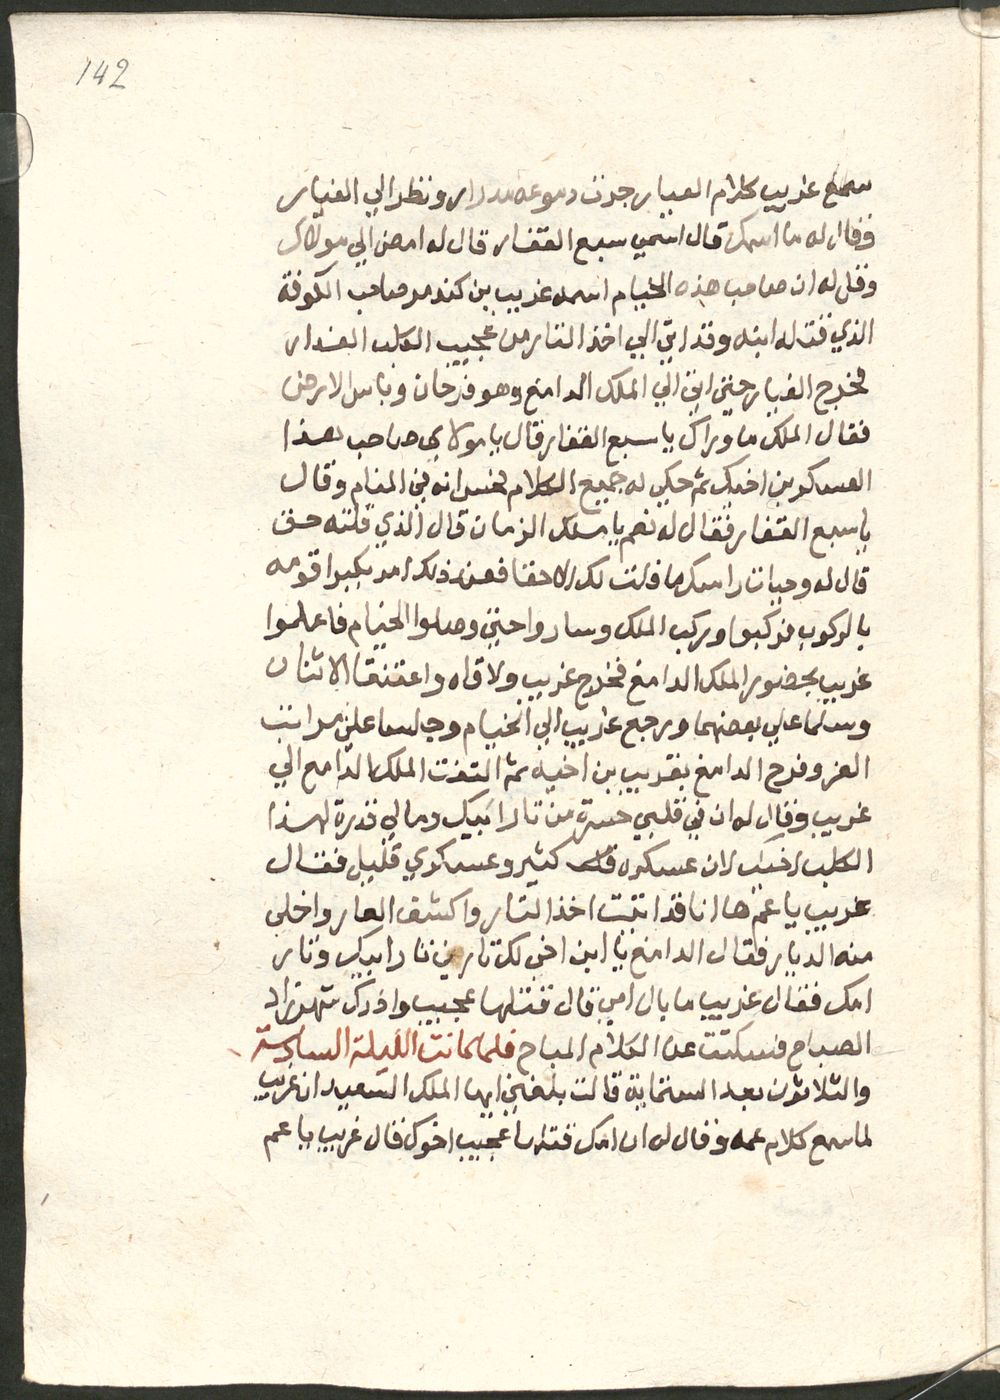 142
سمع غريب كلام العيار جرت دموعه مدرار ونظر الي العيار
وقال له ما اسمك قال اسمي سبع القفار قال له امض الي مولاك
وقل له ان صاحب هذه الخيام اسمه غريب بن كندمر صاحب الكوفة
الذي قتله ابنه وقد اتي الي اخذ التار من عجيب الكلب الغدار
فخرج العيار حتي اتي الي الملك الدامغ وهو فرحان وباس الارض
فقال الملك ما وراك يا سبع القفار قال يا مولاي صاحب هذا
العسكر بن اخيك ثم حكي له جميع الكلام فحسب انه في المنام وقال
يا سبع القفار فقال له نعم يا ملك الزمان قال الذي قلته حق
قال له وحيات راسك ما قلت لك الا حقا فعند ذلك امر بكبرا قومه
بالركوب فركبوا وركب الملك وساروا حتي وصلوا الخيام فاعلموا
غريب بحضور الملك الدامغ فخرج غريب ولاقاه واعتنقا الاثنان
وسلما علي بعضهما ورجع غريب الي الخيام وجلسا علي مراتب
العز وفرح الدامغ بغريب بن اخيه ثم التفت الملك الدامغ الي
غريب وقال له ان في قلبي حسرة من تار ابيك وما لي قدرة لهذا
الكلب اخيك لان عسكره كثير وعسكري قليل فقال
غريب يا عم ها انا قد اتيت اخذ التار واكشف العار واخلي
منه الديار فقال الدامغ يا ابن اخي لك تارين تار ابيك وتار
امك فقال غريب ما بال امي قال قتلها عجيب وادرك شهرزاد
الصباح فسكتت عن الكلام المباح فلما كانت الليلة السادسة
والثلاثون بعد الستماية قالت بلغني ايها الملك السعيد ان غريب
لما سمع كلام عمه وقال له ان امك قتلها عجيب اخوك قال غريب يا عم